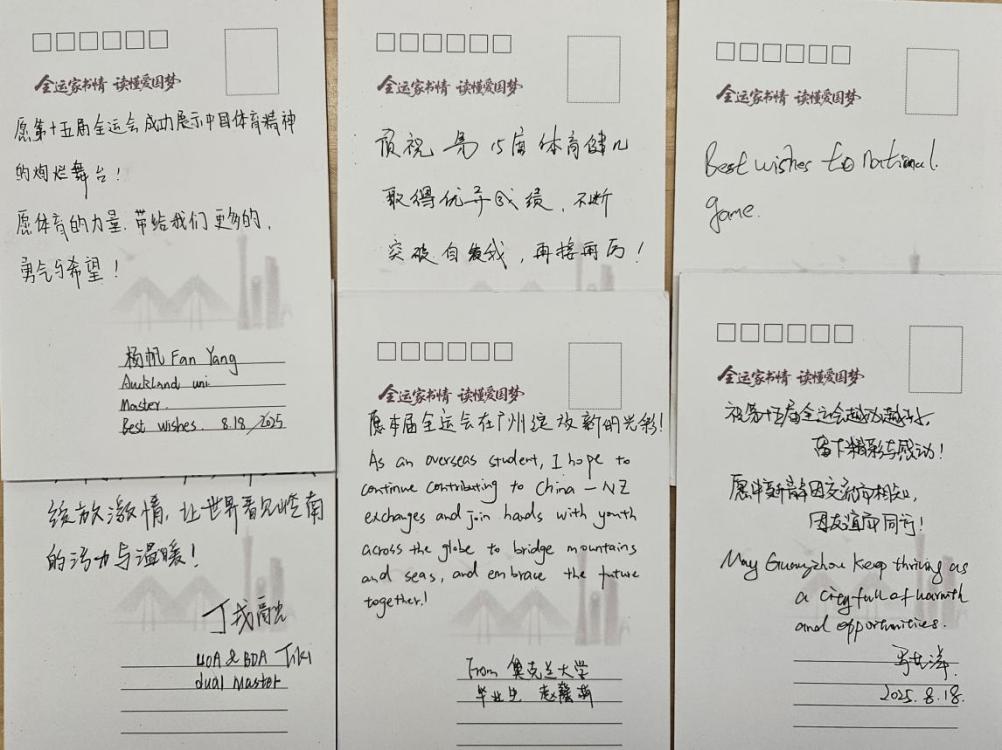 全运家书情 读懂爱国梦
愿第十五届全运会成功展示中国体育精神
的绚烂舞台！
愿体育的力量，带给我们更多的，
勇气与希望！
杨帆 Fan Yang
Auckland uni
Master.
Best wishes. 8.18/2025
绽放激情，让世界看见岭南
的活力与温暖！
UOA & BDA Tiki
dual Master
全运家书情 读懂爱国梦
预祝 第15届体育健儿
取得优异成绩，不断
突破自我，再接再厉！
全运家书情 读懂爱国梦
愿本届全运会在广州绽放新的光彩！
As an overseas student, I hope to
continue contributing to China-NZ
exchanges and join hands with youth
across the globe to bridge mountains
and seas, and embrace the future
together!
From 奥克兰大学
毕业生 赵
全运家书情 读懂爱国梦
Best wishes to national
game.
全运家书情 读懂爱国梦
祝第十五届全运会越办越好，
留下精彩与感动！
愿中新青年因交流而相知，
因友谊而同行！
May Guangzhou keep thriving as
a city full of warmth
and opportunities.
2025.8.18.